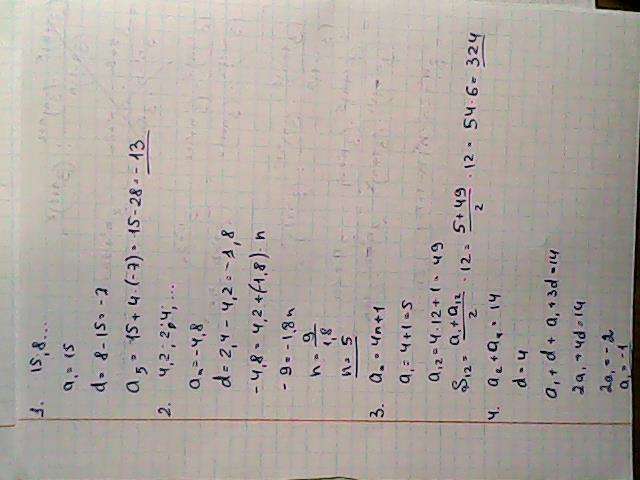 1. 15,8...
a₁=15
d=8-15=-7
a₅=15+4·(-7)=15-28=-13
2. 4,2; 2,4; ...
aₙ=-4,8
d=2,4-4,2=-1,8
-4,8=4,2+(-1,8)·n
-9=-1,8n
n=9/1,8
n=5
3. aₙ=4n+1
a₁=4+1=5
a₁₂=4·12+1=49
S₁₂=(a₁+a₁₂)/2·12=(5+49)/2·12=54·6=324
4. a₂+a₄=14
d=4
a₁+d+a₁+3d=14
2a₁+4d=14
2a₁=-2
a₁=-1